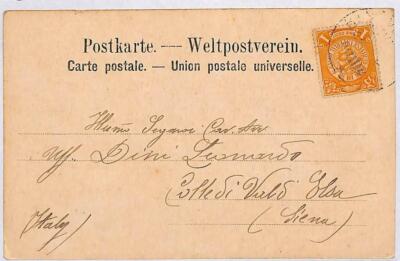 Postkarte. — Weltpostverein.
Carte postale. — Union postale universelle.
1
1
Illumo Signor Cav. Avv
Uff. Dini Leonardo
Colle di Vald' Elsa
(Siena)
(Italy)